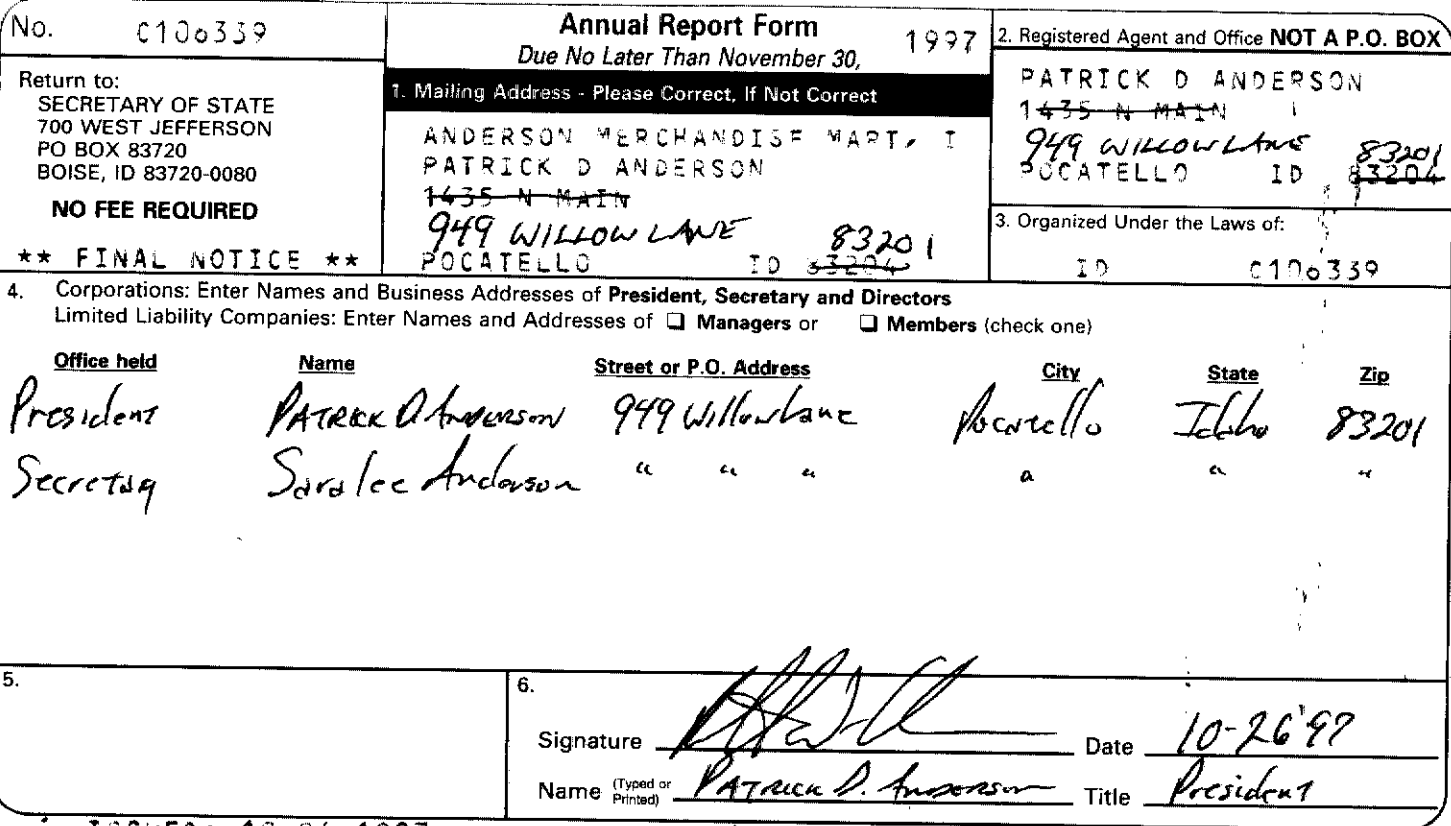 No. C106339
Annual Report Form
Due No Later Than November 30, 1997
Return to:
SECRETARY OF STATE
700 WEST JEFFERSON
PO BOX 83720
BOISE, ID 83720-0080
NO FEE REQUIRED
** FINAL NOTICE **
1. Mailing Address - Please Correct, If Not Correct
ANDERSON MERCHANDISE MART, I
PATRICK D ANDERSON
1435 N MAIN
949 WILLOW LANE 83201
POCATELLO ID 83204
2. Registered Agent and Office NOT A P.O. BOX
PATRICK D ANDERSON
1435 N MAIN
949 WILLOW LANE 83201
POCATELLO ID 83204
3. Organized Under the Laws of:
ID C106339
4. Corporations: Enter Names and Business Addresses of President, Secretary and Directors
Limited Liability Companies: Enter Names and Addresses of ☐ Managers or ☐ Members (check one)
Office held Name Street or P.O. Address City State Zip
President PATRICK D. ANDERSON 949 Willow Lane Pocatello Idaho 83201
Secretary Saralee Anderson " " " " " "
5.
6.
Signature Date 10-26'97
Name (Typed or Printed) PATRICK D. ANDERSON Title President